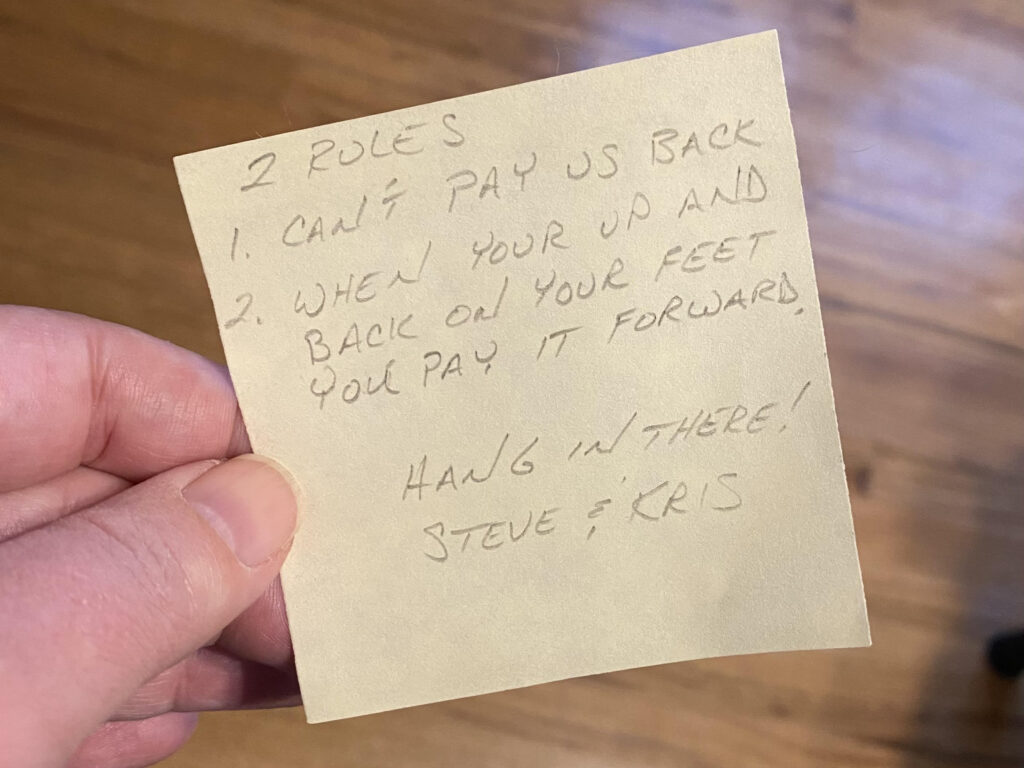 2 RULES
1. CAN'T PAY US BACK
2. WHEN YOUR UP AND
BACK ON YOUR FEET
YOU PAY IT FORWARD.
HANG IN THERE!
STEVE & KRIS